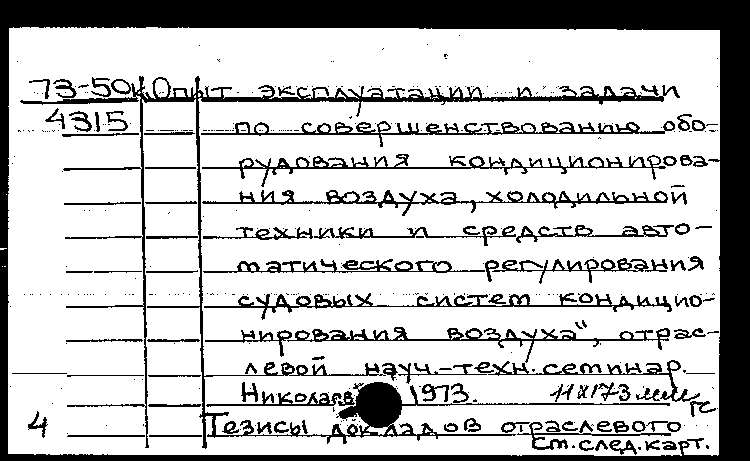 73-50к Опыт эксплуатации и задачи
4315 по совершенствованию обо-
рудования кондиционирова-
ния воздуха, холодильной
техники и средств авто-
матического регулирования
судовых систем кондицио-
нирования воздуха", отрас-
левой науч.-техн. семинар.
Николаев 1973. 
4 Тезисы докладов отраслевого
См. след. карт.